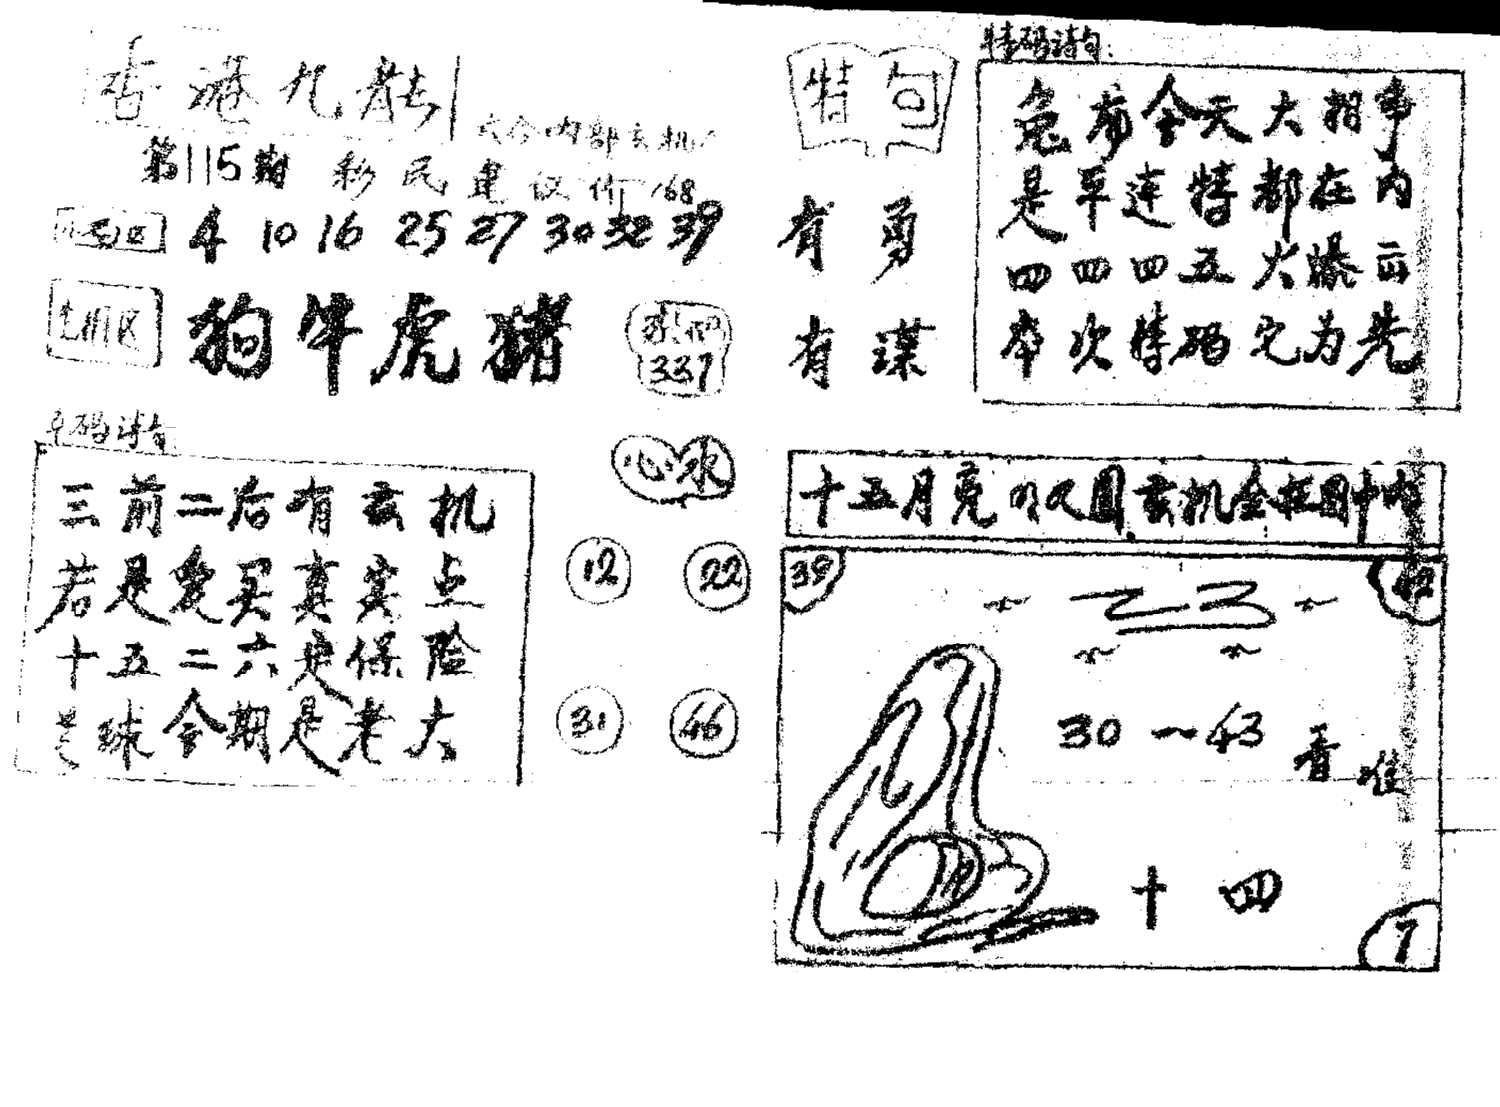 香港九龙
六合内部玄机
第115期 彩民建议价168
4 10 16 25 27 30 32 39
狗牛虎猪
337
平码诗句
三前二后有玄机
若是爱买真实点
十五二六是保险
球今期是老大
心水
12 22
31 46
特句
有勇
有谋
特码诗句:
兔布今天大相争
是平连特都在内
四四四五火爆
本次特码它为先
十五月亮 又圆.玄机全在图中
39 42
30～43 看准
十四
7